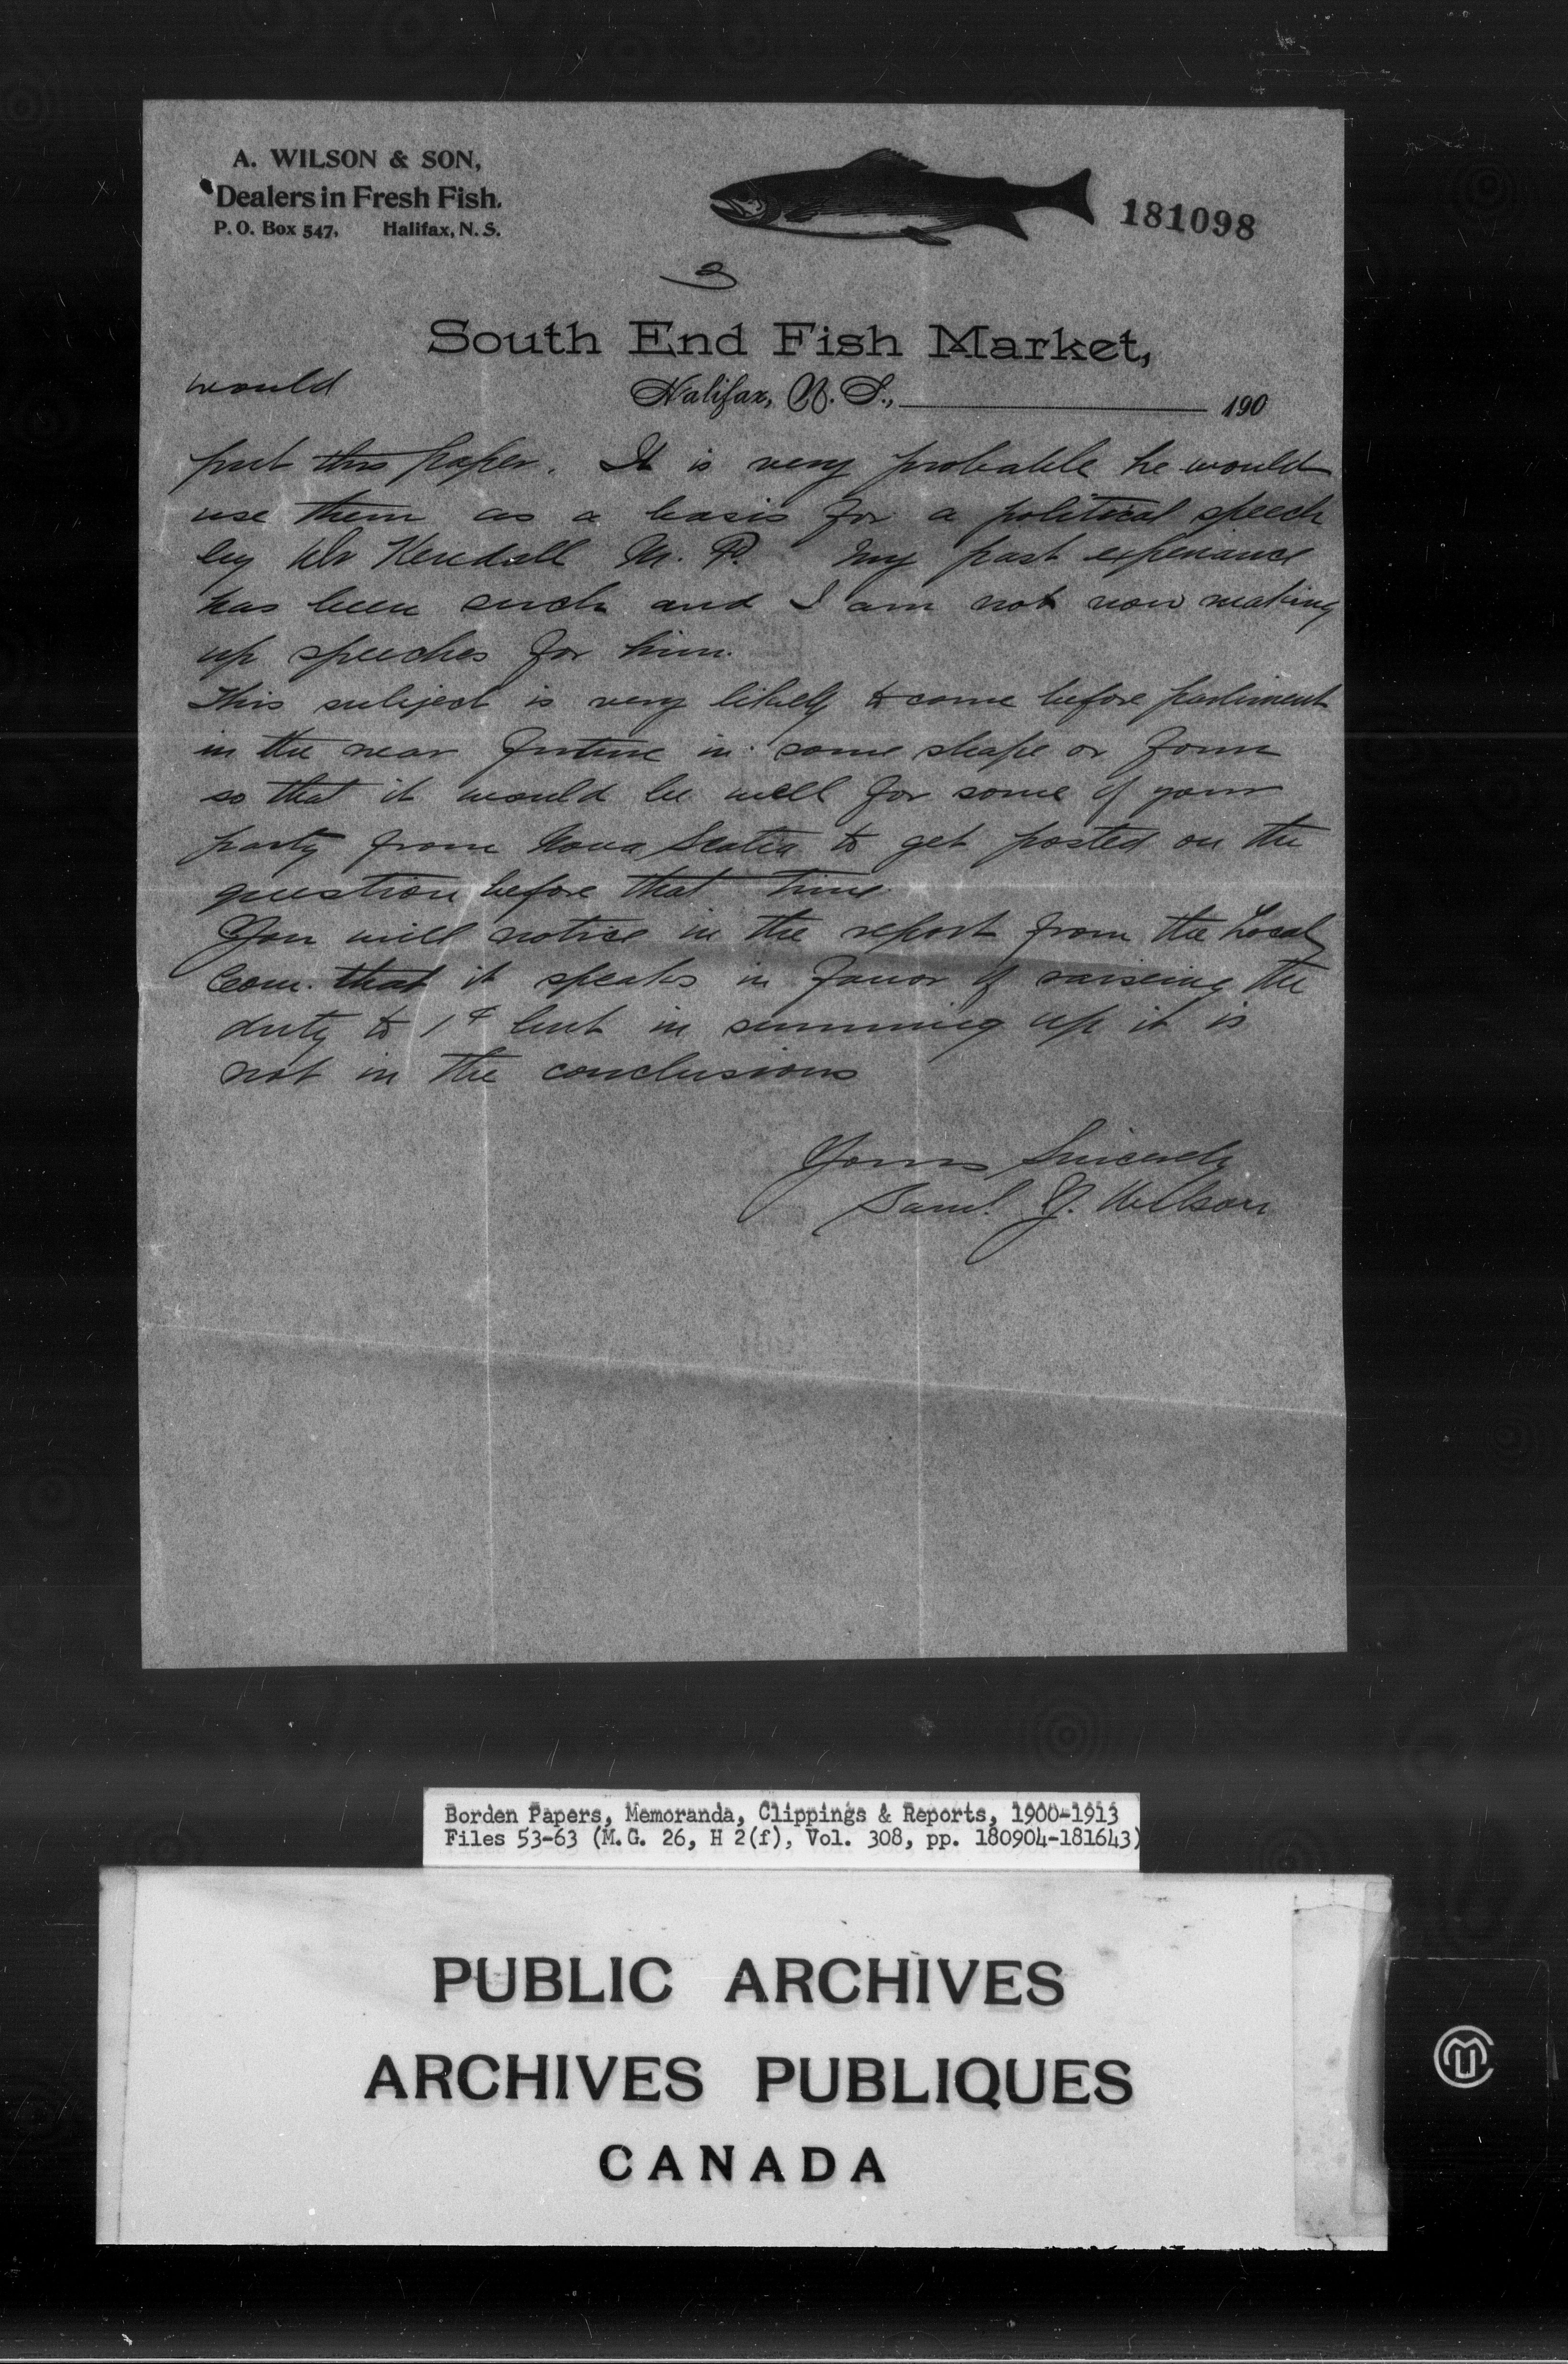 A. WILSON & SON,
Dealers in Fresh Fish.
P. O. Box 547, Halifax, N. S.
181098
3
South End Fish Market,
Halifax, N. S., 190
would
put this paper. It is very probable he would
use them as a basis for a political speech
by Dr Kendall M. P. My past experiance
has been such and I am not now making
up speeches for him.
This subject is very likely to come before parliment
in the near future in some shape or form
so that it would be well for some of your
party from Nova Scotia to get posted on the
question before that time.
You will notice in the report from the Local
Com. that it speaks in favor of raiseing the
duty to 1¢ but in summing up it is
not in the conclusions
Yours Sincerely
Saml. Y. Wilson
Borden Papers, Memoranda, Clippings & Reports, 1900-1913
Files 53-63 (M.G. 26, H 2(f), Vol. 308, pp. 180904-181643)
PUBLIC ARCHIVES
ARCHIVES PUBLIQUES
CANADA